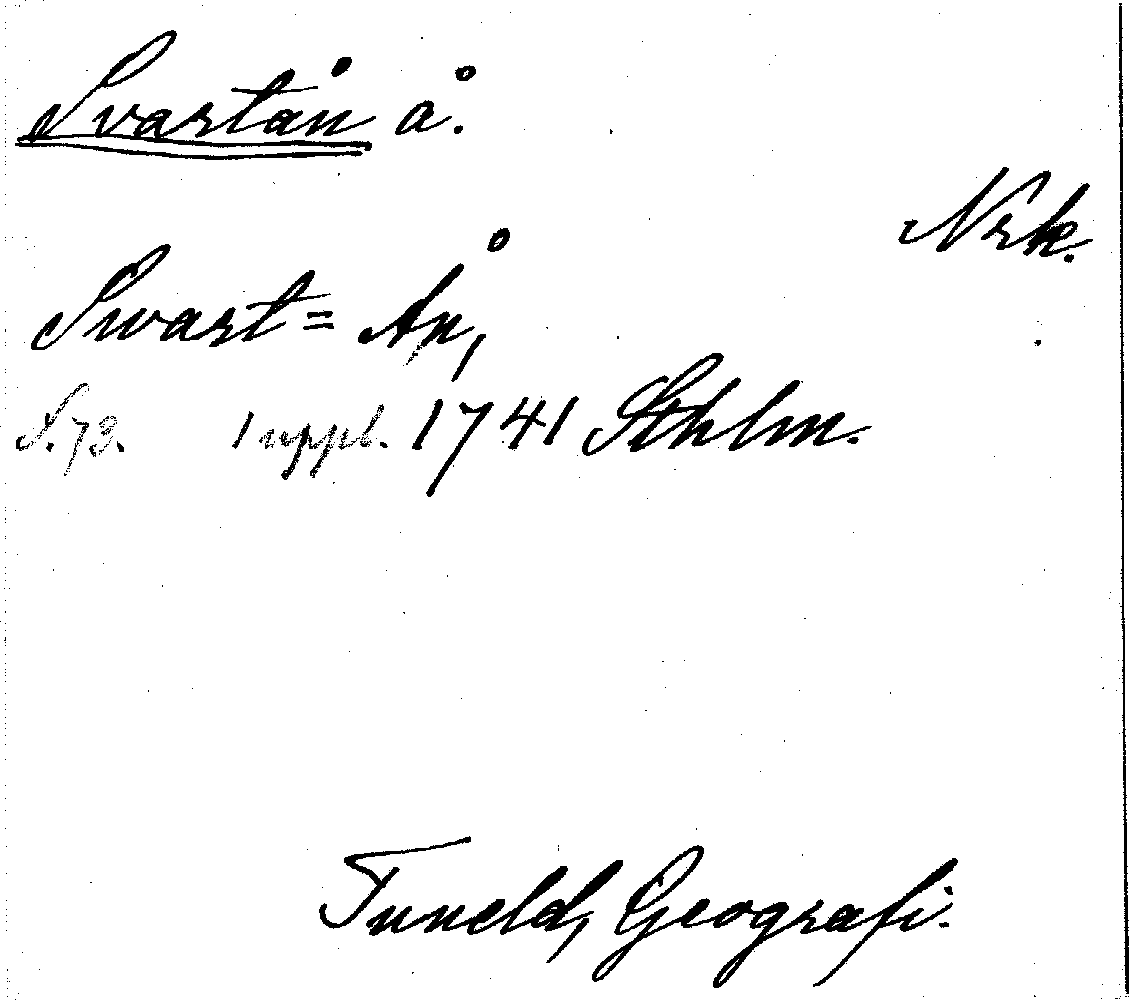 Svartån å.
Nrk.
Swart= Ån,
S. 73. 1 uppl. 1741 Sthlm.
Tuneld, Geografi.